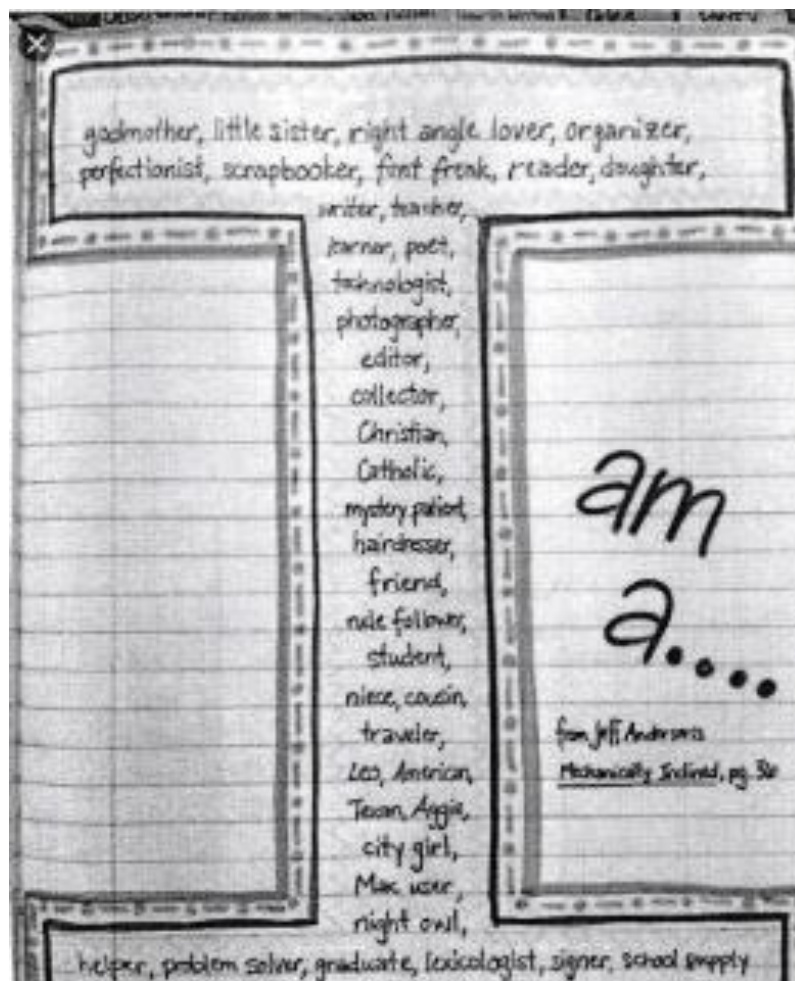 godmother, little sister, right angle lover, organizer,
perfectionist, scrapbooker, font freak, reader, daughter,
writer, teacher,
learner, poet,
technologist,
photographer,
editor,
collector,
Christian,
Catholic,
mystery patient,
hairdresser,
friend,
rule follower,
student,
niece, cousin,
traveler,
Leo, American,
Texan, Aggie,
city girl,
Mac user,
night owl,
helper, problem solver, graduate, lexicologist, signer, school supply
am
a....
from Jeff Anderson's
Mechanically Inclined, pg. 36